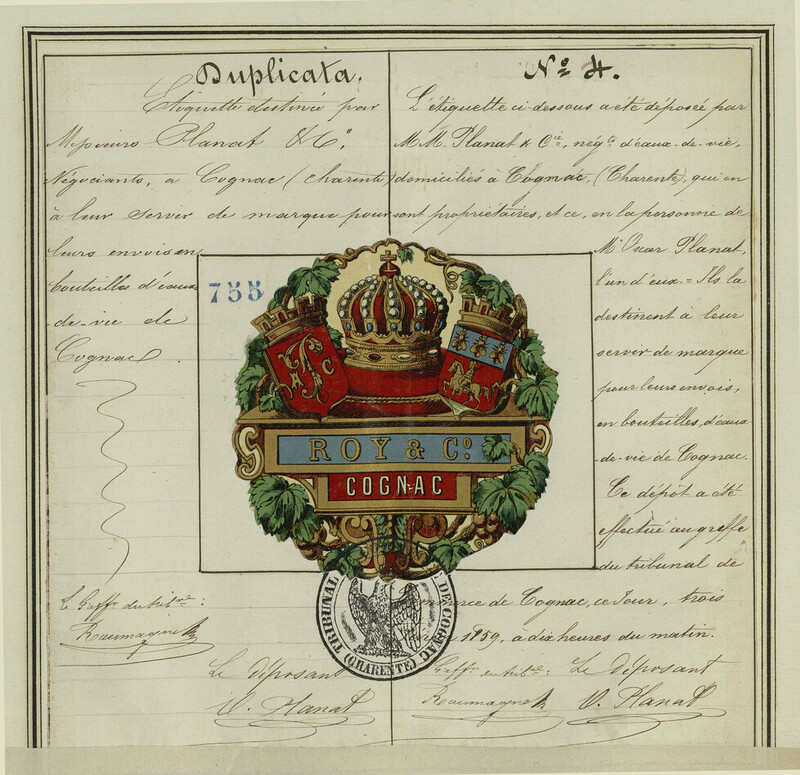 Duplicata.
Etiquette destinée par
Messieurs Planat & Cº.
Négociants, a Cognac (charente)
à leur server de marque pour
leurs envois en
bouteilles d'eaux
de-vie de
Cognac
Le Greff. du trib.al :
Le déposant
O. Planat
Nº 4.
L'étiquette ci-dessous a été déposée par
M.M. Planat & Cie, négts d'eaux-de-vie,
domiciliés à Cognac, (Charente), qui en
sont propriétaires, et ce, en la personne de
Mr Oscar Planat,
l'un d'eux. = Ils la
destinent à leur
servir de marque
pour leurs envois,
en bouteilles, d'eaux
-de-vie de Cognac.
Ce dépôt a été
effectué au greffe
du tribunal de
merce de Cognac, ce jour, trois
1859, a dix heures du matin.
Greff. du trib.al : Le déposant
O. Planat
755
P
M C
ROY & Cº
COGNAC
TRIBUNAL DE COGNAC
(CHARENTE)